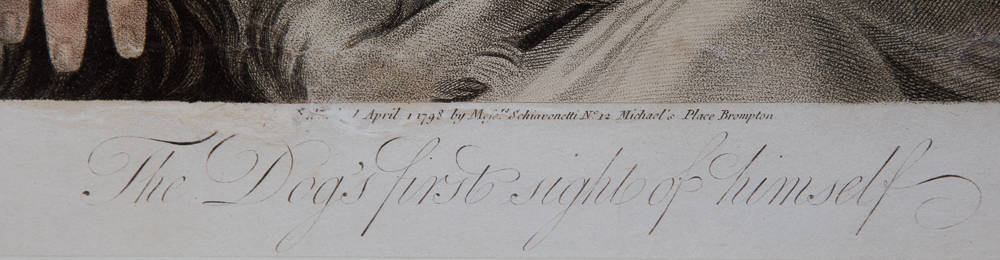 April 1 1798 by Mess.rs Schiavonetti No. 12 Michael's Place Brompton
The Dog's first sight of himself